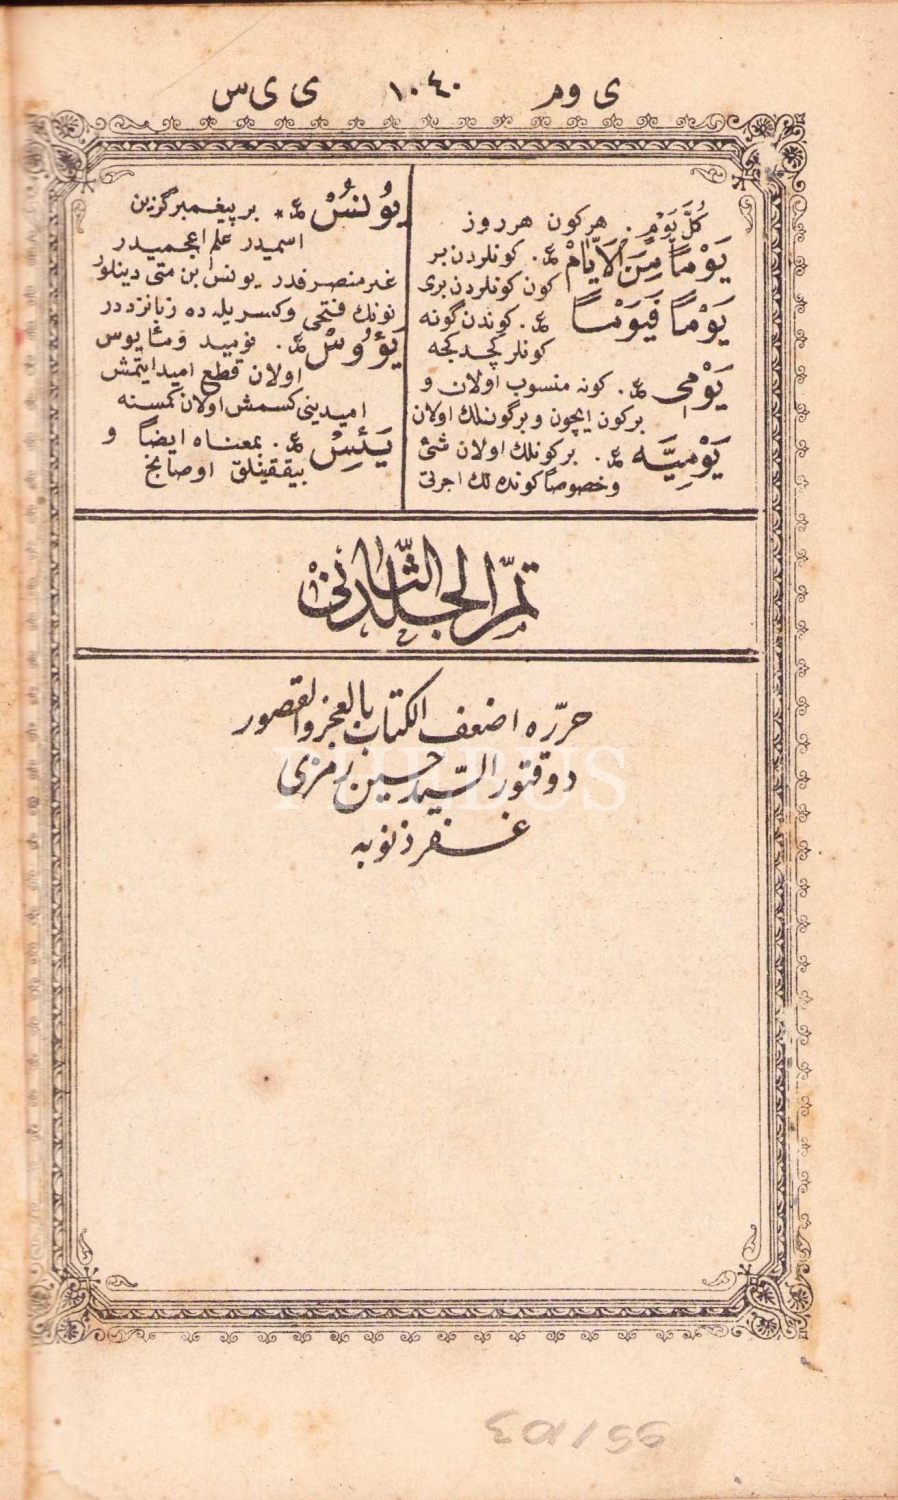 ی و م ۱۰٤۰ ی ی س
كُلَّ يَوْمٍ. هر كون هر روز
يَوْمًا مِنَ الْاَيَّامْ ع. كونلردن بر
كون كونلردن بری
يَوْمًا فَيَوْمًا ع. كوندن گونه
كونلر كچدكجه
يَوْمِی ع. كونه منسوب اولان و
بر كون ايچون و بر گونلك اولان
يَوْمِيَّه ع. بر كونلك اولان شئ
و خصوصا كونده لك اجرتی
يُونُسْ ع* بر پيغمبر گزين
اسميدر علم اعجميدر
غير منصرفدر يونس بن متی دينلور
نونك فتحی و كسريله ده زبانزددر
يَؤُوسْ ع. نوميد و مأيوس
اولان قطع اميد ايتمش
اميدينی كسمش اولان كمسنه
يَئِسْ ع. بمعناه ايضاً و
بيققينلق اوصانج
تمّ الجلد الثانی
حرّره اضعف الكتاب بالعجز والقصور
دوقتور السيّد حسين رمزی
غفر ذنوبه
PHEBUS
95/103